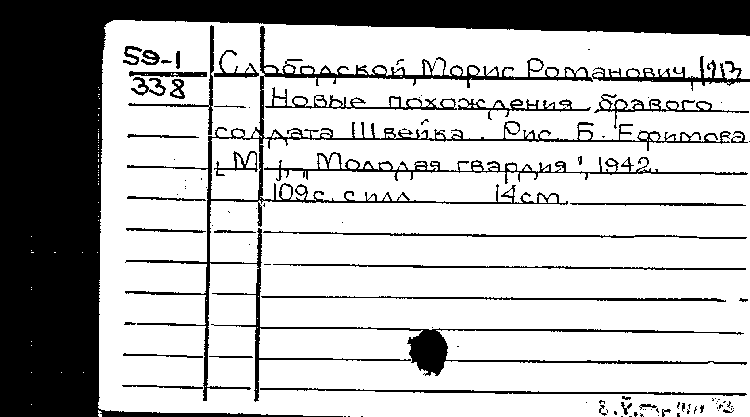 59-1 Слободской, Морис Романович, 1913
338 Новые похождения бравого
солдата Швейка. Рис. Б. Ефимова
[М.], „Молодая гвардия", 1942.
109 с. с илл. 14 см.